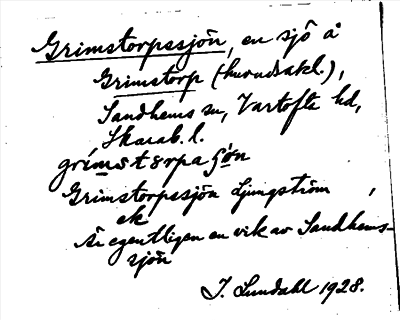 Grimstorpssjön, en sjö å
Grimstorp (huvudsakl.),
Sandhems sn, Vartofta hd,
Skarab. l.
grimstørpaʃön
Grimstorpssjön Ljungström
ek
Är egentligen en vik av Sandhems-
sjön
I. Lundahl 1928.